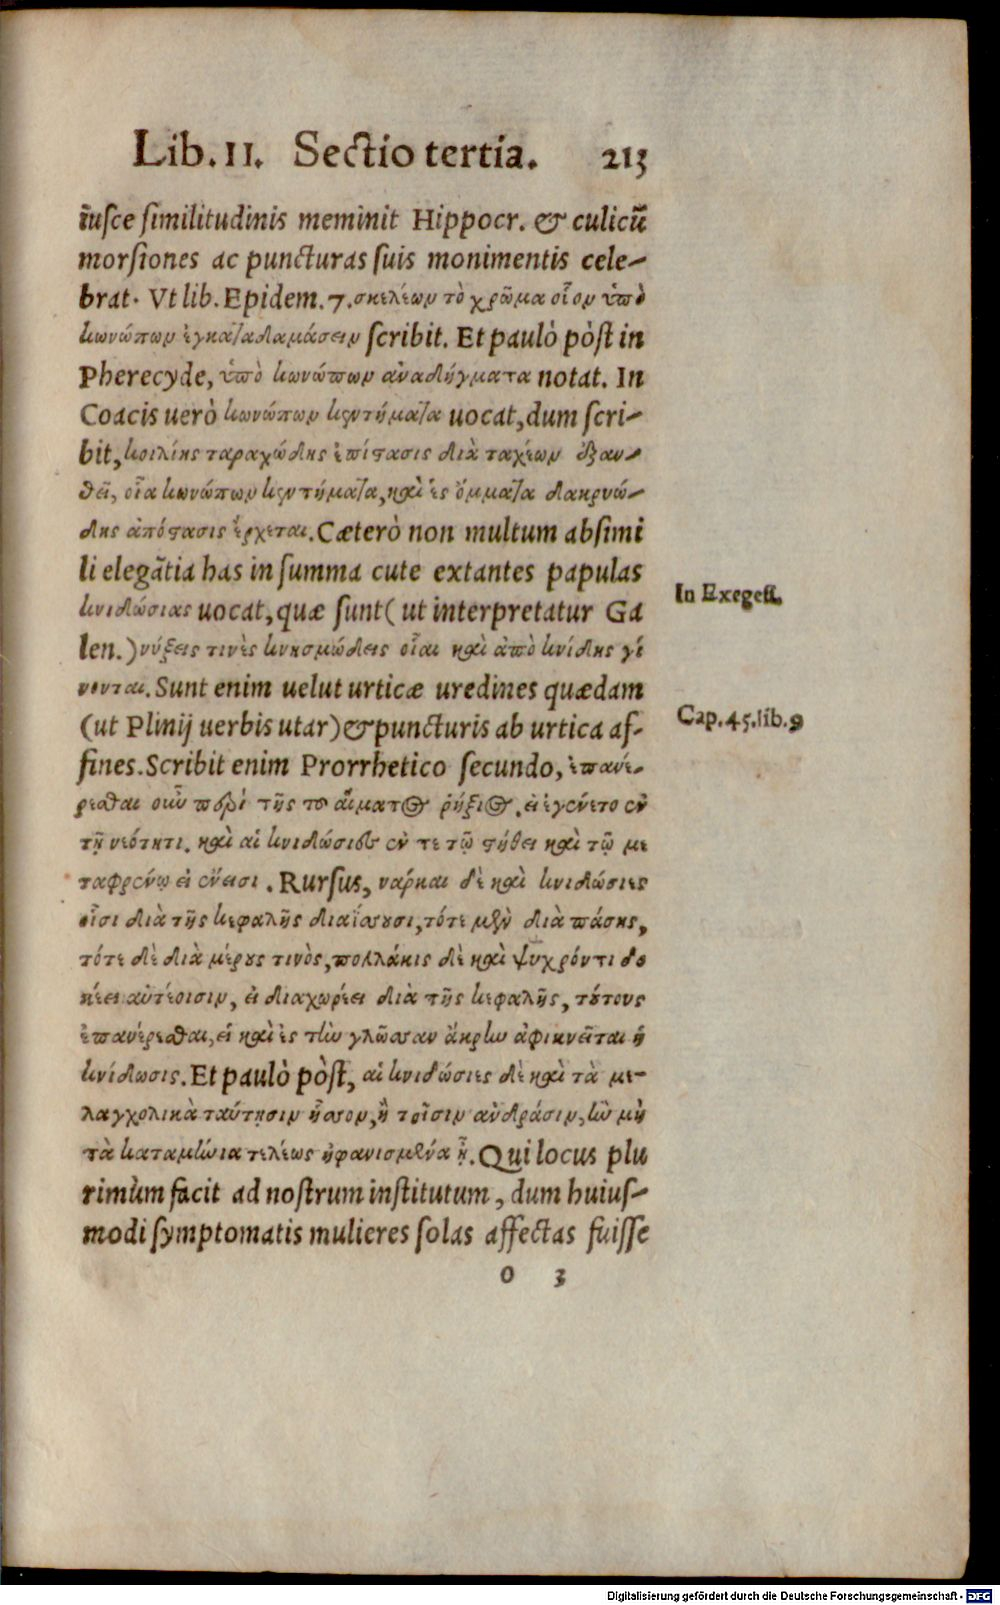 Lib. II. Sectio tertia. 213
iusce similitudinis meminit Hippocr. & culicũ
morsiones ac puncturas suis monimentis cele-
brat. Vt lib. Epidem. 7. σκελέων τὸ χρῶμα οἷον ὑπὸ
κωνώπων ἐγκαταδαμάσειν scribit. Et paulò pòst in
Pherecyde, ὑπὸ κωνώπων ἀναδήγματα notat. In
Coacis uerò κωνώπων κεντήματα uocat, dum scri-
bit, κοιλίης ταραχώδης ἐπίστασις διὰ ταχέων ἐξαν-
θεῖ, οἷα κωνώπων κεντήματα, καὶ ἐς ὄμματα δακρυώ-
δης ἀπόστασις ἔρχεται. Cæterò non multum absimi
li elegãtia has in summa cute extantes papulas
κνιδώσιας uocat, quæ sunt ( ut interpretatur Ga
len.) νύξεις τινὲς κνησμώδεις οἷαι καὶ ἀπὸ κνίδης γί
νονται. Sunt enim uelut urticæ uredines quædam
(ut Plinij uerbis utar) & puncturis ab urtica af-
fines. Scribit enim Prorrhetico secundo, ἐπανέ-
ρεσθαι οὖν περὶ τῆς τοῦ αἵματος ῥήξιος, εἰ ἐγένετο ἐν
τῇ νεότητι, καὶ αἱ κνιδώσιες ἐν τε τῷ στήθει καὶ τῷ με
ταφρένῳ εἰ ἔνεισι. Rursus, νάρκαι δὲ καὶ κνιδώσιες
οἷσι διὰ τῆς κεφαλῆς διαΐσσουσι, τότε μὲν διὰ πάσης,
τότε δὲ διὰ μέρους τινὸς, πολλάκις δὲ καὶ ψυχρόν τι δο
κέει αὐτέοισιν, εἰ διαχωρέει διὰ τῆς κεφαλῆς, τούτους
ἐπανέρεσθαι, εἰ καὶ ἐς τὴν γλῶσσαν ἄκρην ἀφικνεῖται ἡ
κνίδωσις. Et paulò pòst, αἱ κνιδώσιες δὲ καὶ τὰ με-
λαγχολικὰ ταύτῃσιν ἧσσον, ἢ τοῖσιν ἀνδράσιν, ἢν μὴ
τὰ καταμήνια τελέως ἠφανισμένα ᾖ. Qui locus plu
rimùm facit ad nostrum institutum, dum huius-
modi symptomatis mulieres solas affectas fuisse
o 3
In Exegesi.
Cap. 45. lib. 9
Digitalisierung gefördert durch die Deutsche Forschungsgemeinschaft - DFG